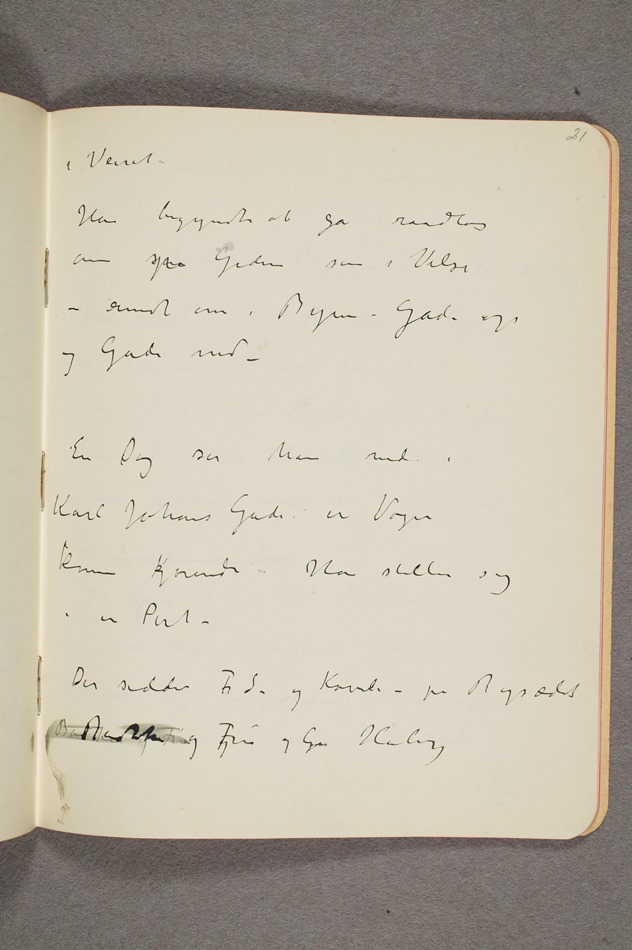 21
i Veiret –
Han begyndte at ga raadløs
om Gaden som i Vilse
– rundt om i Byen – Gade op
og Gade ned –
En Dag saa han ned i
Karl Johans Gade en Vogn
komme kjørende – Han stiller sig
i en Port –
Der sidder og – pa Bagsædet
og og